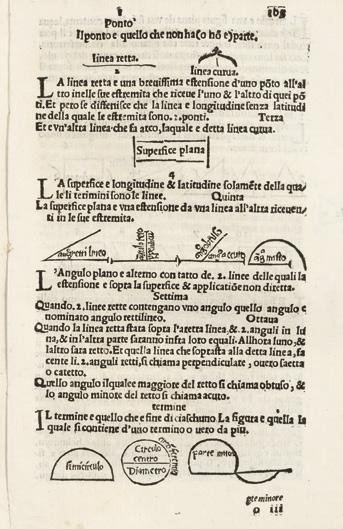 1
105
Ponto
Il ponto e quello che non ha cō hō e parte.
linea retta.
2
linea curua.
LA linea retta e una breuissima estensione d'uno pōto all'al
tro inelle sue estremita che riceue l'uno & l'altro di quei pō
ti. Et pero se diffenisce che la linea e longitudine senza latitudi
ne della quale le estremita sono .2. ponti. Terza
Et e vn'altra linea che fa arco, laquale e detta linea curua.
Superfice plana
4
LA superfice e longitudine & latitudine solamēte della qua
le li terimini sono le linee. Quinta
La superfice plana e vna estensione da vna linea all'altra riceuen
ti in le sue estremita.
L'Angulo plano e alterno con tatto de .2. linee delle quali la
estensione e sopra la superfice & applicatiōe non diretta.
Settima
Quando .2. linee rette contengano vno angulo quello angulo e
nominato angulo rettilineo. Ottaua
Quando la linea retta stara sopra l'aretta linea, & .2. anguli in lu
na, & in l'altra parte saranno infra loro equali. Allhora luno, &
laltro sara retto. Et quella linea che soprasta alla detta linea, fa
cente li .2. anguli retti, si chiama perpendiculare, ouero saetta
o catetto.
Quello angulo ilqualce maggiore del retto si chiama obtuso, &
lo angulo minore del retto si chiama acuto.
termine
IL termine e quello che e fine di ciaschuno La figura e quella la
quale si contiene d'uno termino o uero da piu.
simicirculo
Circulo
centro
Diametro
parte
minore
o iii